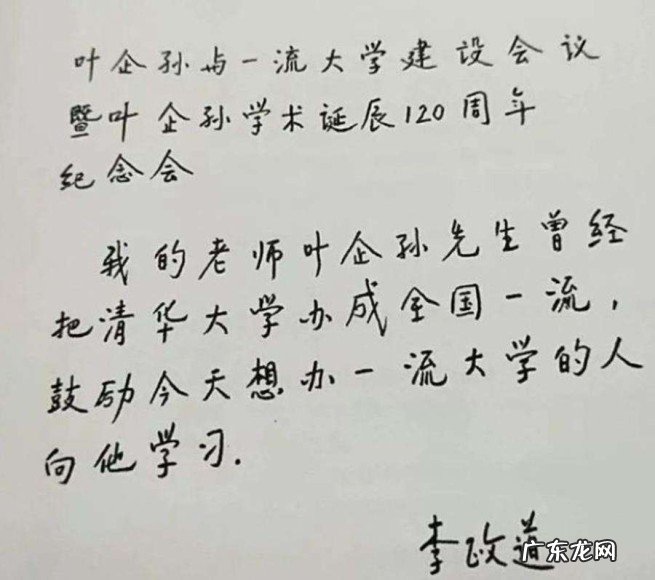 叶企孙与一流大学建设会议
暨叶企孙学术诞辰120周年
纪念会
我的老师叶企孙先生曾经
把清华大学办成全国一流,
鼓励今天想办一流大学的人
向他学习.
李政道
广东龙网